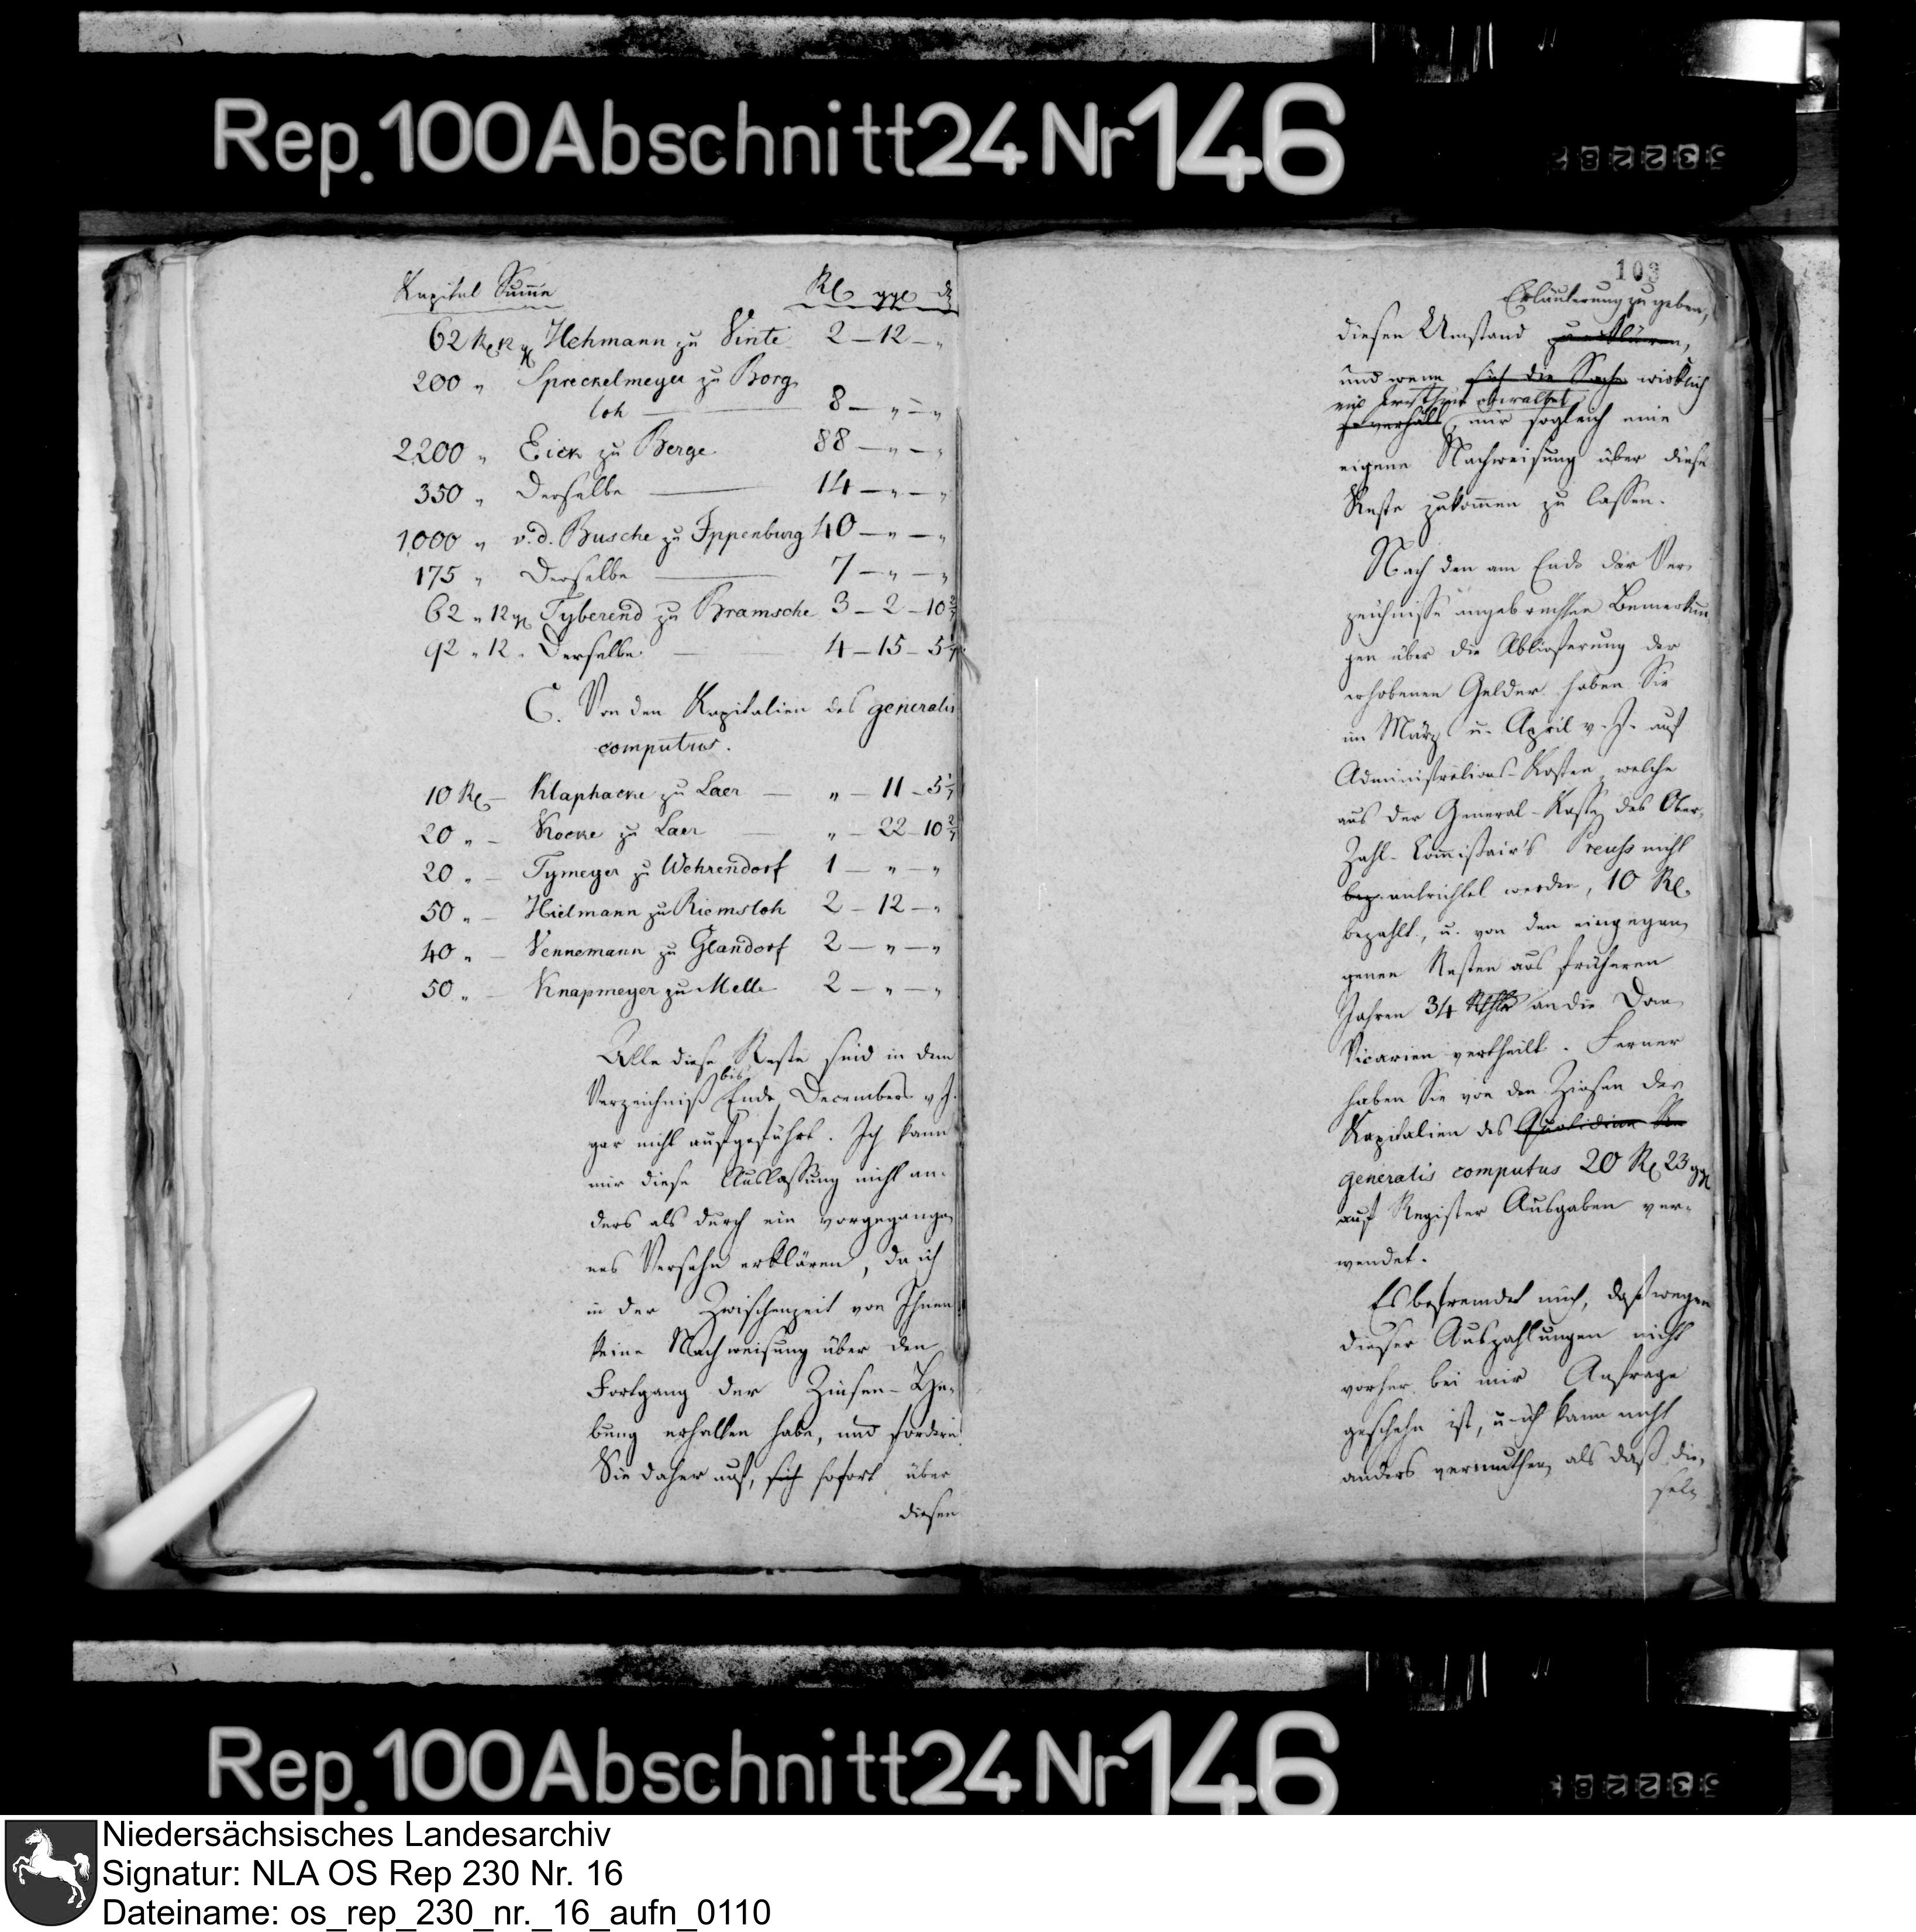 Rep. 100 Abschnitt 24 Nr 146
Kapital Summe Rl ggl d
62 Rl 12 gl Hehmann zu Vinte 2 – 12 – „
200 „ Spreckelmeyer zu Borg-
loh — 8 – „ – „
2200 „ Eick zu Berge 88 – „ – „
350 „ Derselbe — 14 – „ – „
1000 „ v. d. Busche zu Ippenburg 40 – „ – „
175 „ Derselbe — 7 – „ – „
62 „ 12 gl Tyberend zu Bramsche 3 – 2 – 10 2/7
92 „ 12 „ Derselbe — 4 – 15 – 5 1/7
C. Von den Kapitalien des generalis
computus.
10 Rl – Klaphacke zu Laer — „ – 11 – 5 1/7
20 „ – Kocke zu Laer — „ – 22 – 10 2/7
20 „ – Tymeyer zu Wehrendorf 1 – „ – „
50 „ – Hielmann zu Riemsloh 2 – 12 – „
40 „ – Vennemann zu Glandorf 2 – „ – „
50 „ – Knapmeyer zu Melle 2 – „ – „
Alle diese Reste sind in dem
bis
Verzeichniß Ende Decembers v. J.
gar nicht aufgeführt. Ich kann
mir diese Auslassung nicht an-
ders als durch ein vorgegange-
nes Versehn erklären, da ich
in der Zwischenzeit von Ihnen
keine Nachweisung über den
Fortgang der Zinsen-He-
bung erhalten habe, und fordere
Sie daher auf, sich sofort über
diesen
103
Erläuterung zu geben,
diesen Umstand zu erklären,
und wenn sich die Sache wirklich
ein obwaltet
so verhält, mir sogleich eine
eigene Nachweisung über diese
Reste zukommen zu lassen.
Nach den am Ende der Ver-
zeichnisse angebrachten Bemerkun-
gen über die Ablieferung der
erhobenen Gelder haben Sie
im März u. April v. J. auf
Administrations-Kosten, welche
aus der General-Kasse des Ober-
Zahl-Commissair's Preuss nicht
bez. entrichtet werden, 10 Rl.
bezahlt, u. von den eingegan-
genen Resten aus früheren
Jahren 34 Rthlr an die Dom-
Vicarien vertheilt. Ferner
haben Sie von den Zinsen der
Kapitalien des Quotidian
generalis computus 20 Rl 23 ggl
auf Register Ausgaben ver-
wendet.
Es befremdet mich, daß wegen
dieser Auszahlungen nicht
vorher bei mir Anfrage
geschehn ist, u. ich kann nicht
anders vermuthen, als daß die-
selb
Rep. 100 Abschnitt 24 Nr 146
Niedersächsisches Landesarchiv
Signatur: NLA OS Rep 230 Nr. 16
Dateiname: os_rep_230_nr._16_aufn_0110